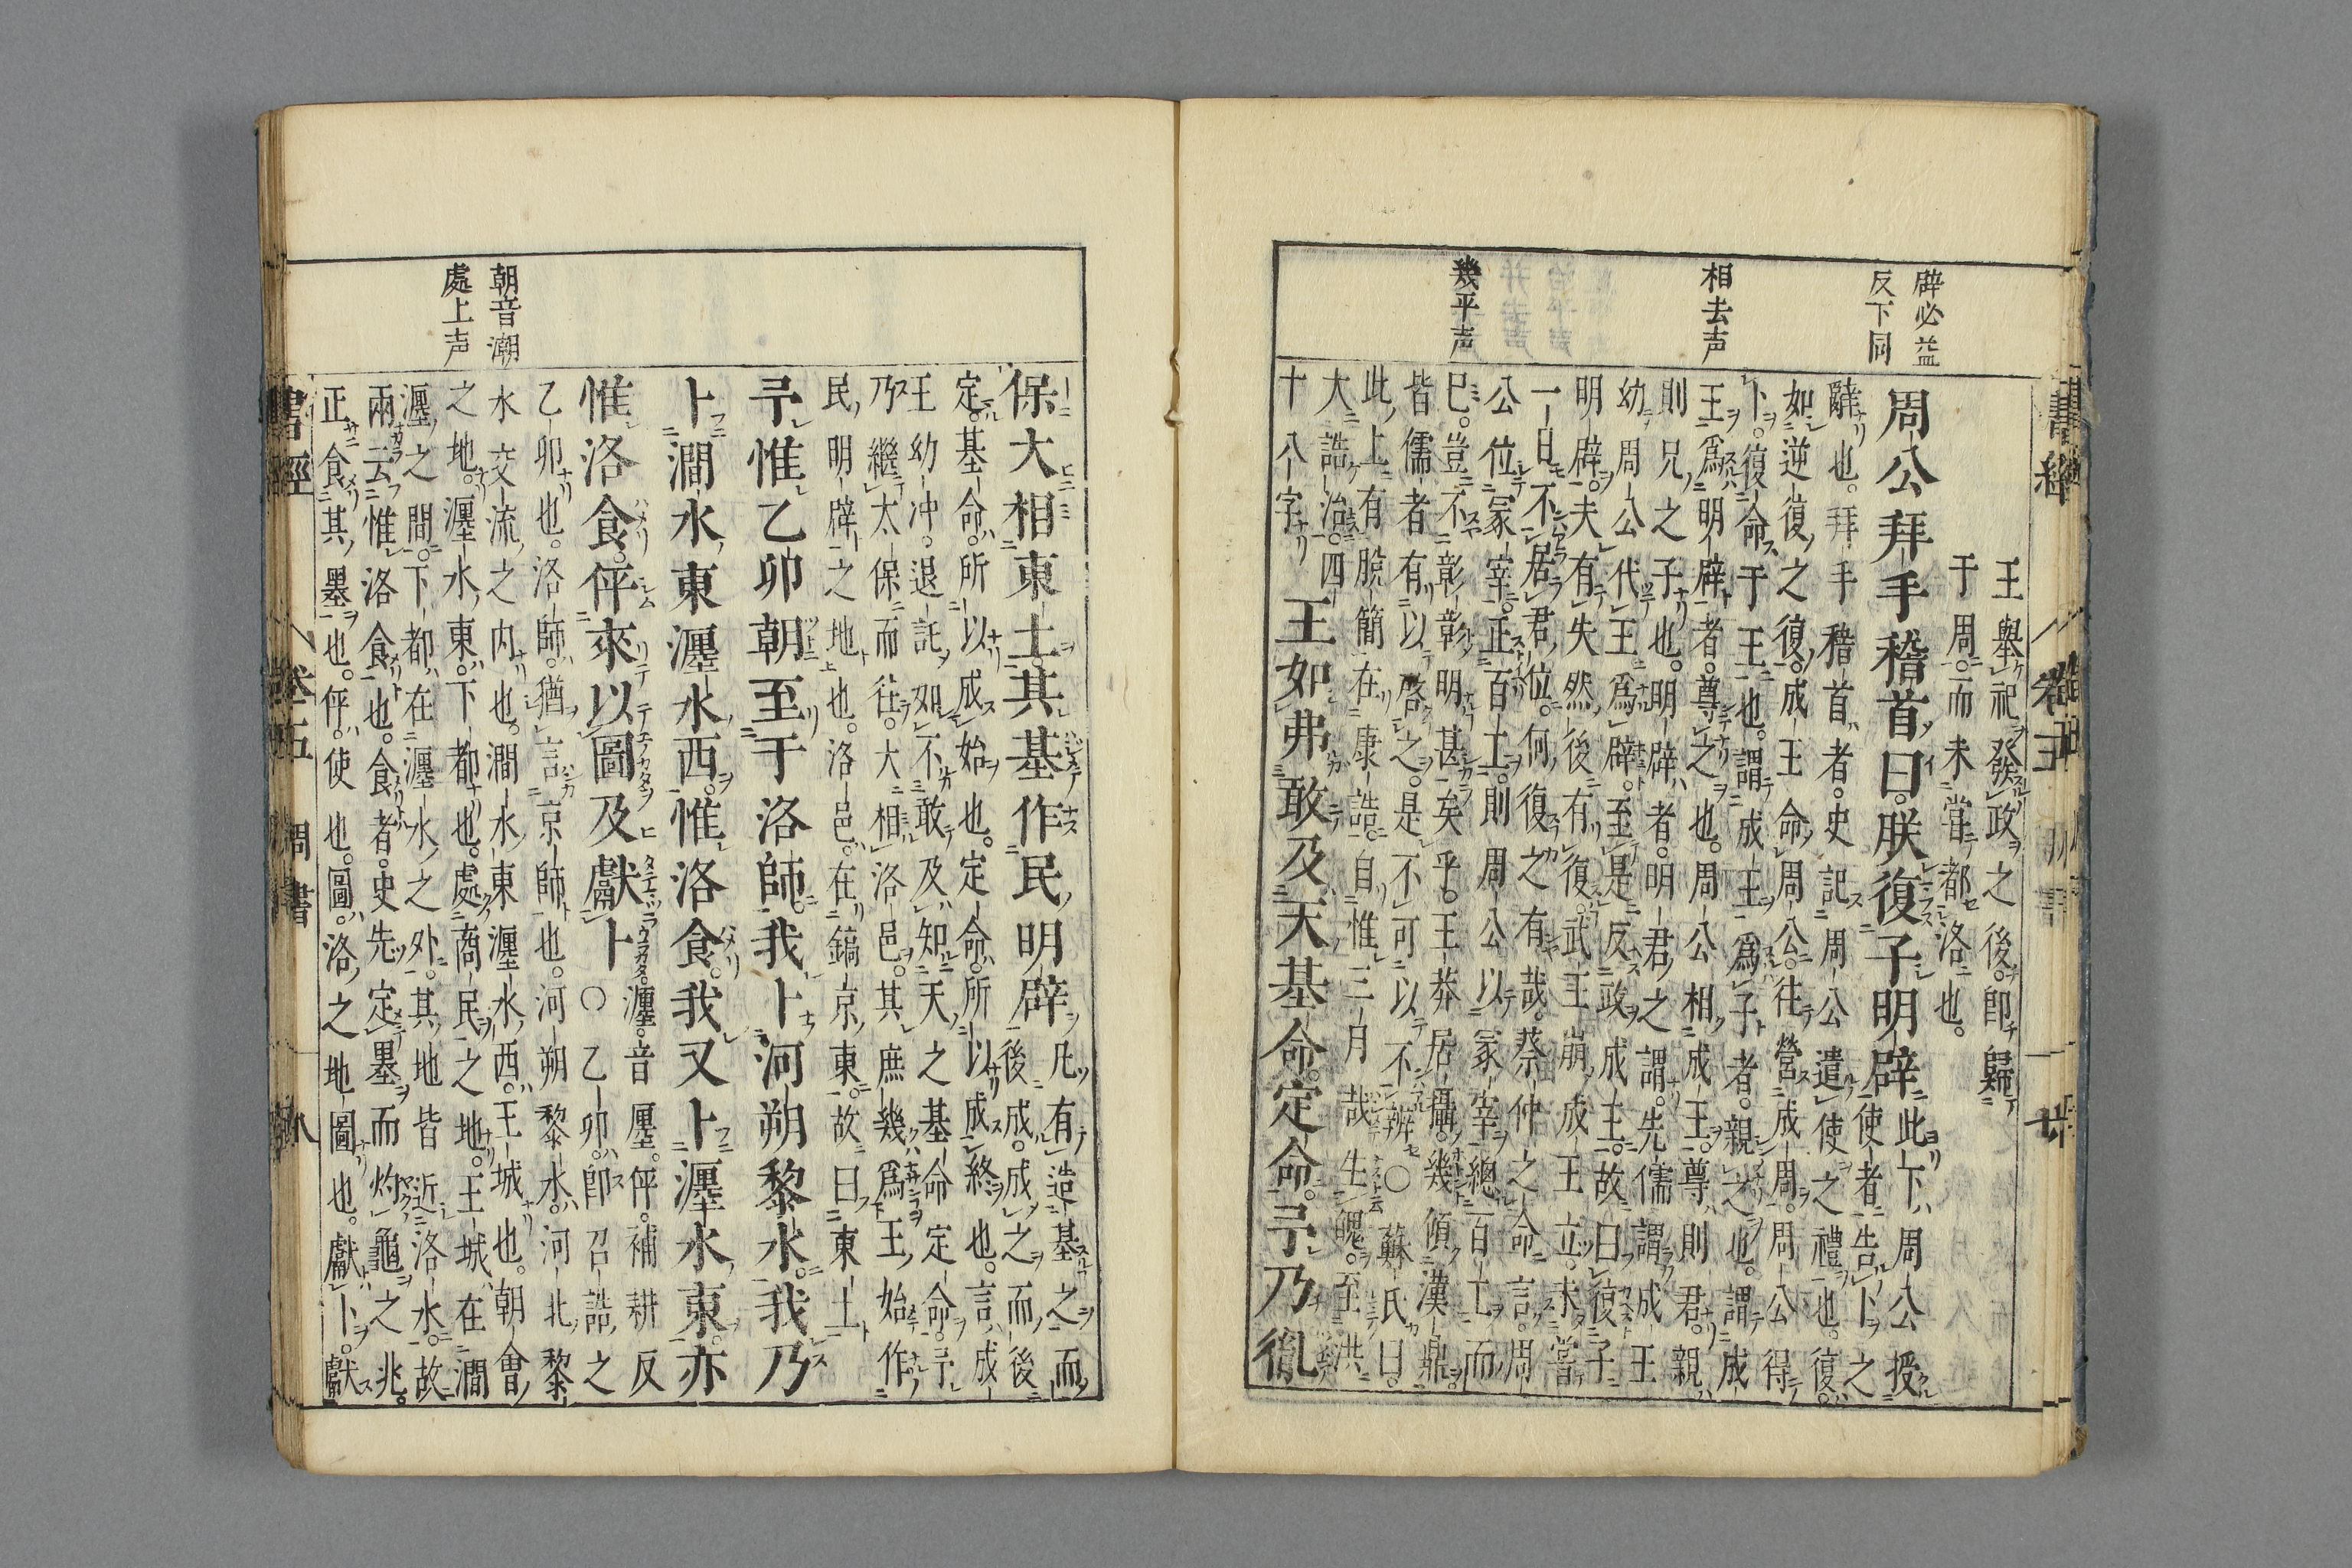 辟必益
反下同
相去声
幾平声
王舉祀發政之後。即歸
于周。而未嘗都洛也。
周公拜手稽首曰。朕復子明辟
此下。周公授
使者告卜之
辭也。拜手稽首者。史記周公遣使之禮也。復。
如逆復之復。成王命周公往營成周。周公得
卜。復命于王也。謂成王爲子者。親之也。謂成
王爲明辟者。尊之也。周公相成王。尊則君。親
則兄之子也。明辟者。明君之謂。先儒謂成王
幼周公代王爲辟。至是反政成王。故曰復子
明辟。夫有失然後有復。武王崩。成王立。未嘗
一日不居君位。何復之有哉。蔡仲之命言。周
公位冢宰。正百工。則周公以冢宰總百工而
已。豈不彰彰明甚矣乎。王莽居攝。幾傾漢鼎。
皆儒者有以啓之。是不可以不辨○蘇氏曰。
此上有脱簡在康誥。自惟三月哉生魄。至洪
大誥治。四
十八字
王如弗敢及天基命定命。予乃胤
朝音潮
處上声
保大相東土其基作民明辟
凡有造基之而
後成。成之而後
定。基命。所以成始也。定命。所以成終也。言成
王幼冲。退託如不敢及知天之基命定命。予
乃繼太保而往。大相洛邑。其庶幾爲王始作
民明辟之地也。洛邑在鎬京東。故曰東土
予惟乙卯朝至于洛師。我卜河朔黎水。我乃
卜澗水東瀍水西。惟洛食。我又卜瀍水東。亦
惟洛食。伻來以圖及獻卜
瀍音厘。伻。補耕反
○乙卯。即召誥之
乙卯也。洛師。猶言京師也。河朔黎水。河北黎
水交流之内也。澗水東瀍水西。王城也。朝會
之地。瀍水東。下都也。處商民之地。王城在澗
瀍之間。下都在瀍水之外。其地皆近洛水。故
兩云惟洛食也。食者。史先定墨而灼龜之兆。
正食其墨也。伻。使也。圖。洛之地圖也。獻卜。獻
書經
卷五
周書
八